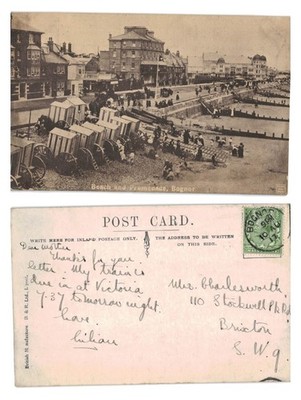 Beach and Promenade, Bognor
POST CARD.
WRITE HERE FOR INLAND POSTAGE ONLY.
THE ADDRESS TO BE WRITTEN
ON THIS SIDE.
Dear Mother
Thanks for your
letter. My train is
due in at Victoria
7.37 tomorrow night.
Love.
Lilian
Mrs. Charlesworth,
110 Stockwell Pk Rd
Brixton
S. W. 9
BOGNOR